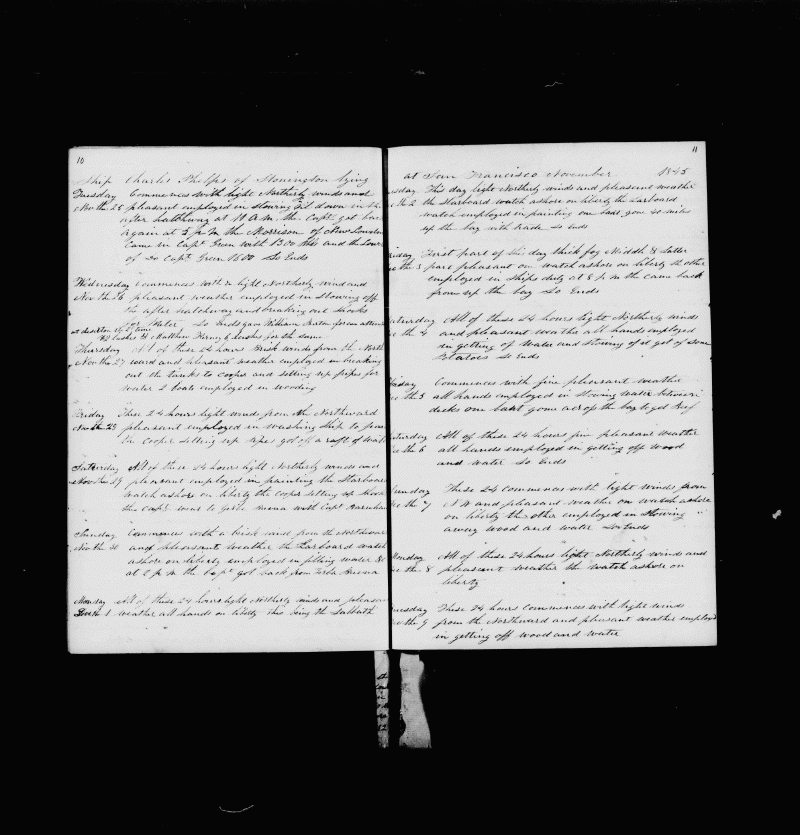 10
Ship Charles Phelps of Stonington lying
Tuesday Commences with light Northerly winds and
Nov the 25 pleasant employed in stowing oil down in the
after hatchway at 10 A.M. the Capt got back
again at 3 p m the Morrison of New London
came in Capt Green with 1300 bbls and the
of do Capt Green 1600 So Ends
Wednesday Commences with a light Northerly wind and
Nov the 26 pleasant weather employed in stowing off
the after hatchway and breaking out shooks
for water So Ends Gave William
at desertion
12 lashes & Matthew 6 lashes for the same
Thursday All of these 24 hours brisk winds from the North
Nov the 27 ward and pleasant weather employed in breaking
out the tanks to cooper and setting up pipes for
water 2 boats employed in wooding
Friday These 24 hours light winds from the Northward
Nov the 28 pleasant employed in washing ship to paint
the cooper setting up pipes got of a raft of water
Saturday All of these 24 hours light Northerly winds and
Nov the 29 pleasant employed in painting the Starboard
watch ashore on liberty the cooper setting up shooks
the Capt went to with Capt
Sunday Commences with a brisk wind from the Northward
Nov the 30 and pleasant weather the Larboard watch
ashore on liberty employed in filling water &c
at 2 p m the Capt got back from
Monday All of these 24 hours light Northerly winds and pleasant
Dec the 1 weather all hands on liberty this being the Sabbath
11
at San Francisco November 1845
esday This day light Northerly winds and pleasant weather
ec the 2 the Starboard watch ashore on liberty the Larboard
watch employed in painting one boat gone 20 miles
up the bay with trade So ends
First part of this day thick fog Middle & latter
ec the 3 part pleasant one watch ashore on liberty the other
employed in ships duty at 8 p m the came back
from up the bay So Ends
aturday All of these 24 hours light Northerly winds
ec the 4 and pleasant weather all hands employed
in getting of water and stowing of it got of some
potatoes So ends
riday Commences with fine pleasant weather
ec the 5 all hands employed in stowing water between
decks one boat gone across the bay to get beef
aturday All of these 24 hours fine pleasant weather
ec the 6 all hands employed in getting off wood
and water So Ends
unday These 24 commences with light winds from
ec the 7 N W and pleasant weather one watch ashore
on liberty the other employed in Stowing
away wood and water So Ends
Monday All of these 24 hours light Northerly winds and
ec the 8 pleasant weather the watch ashore on
liberty
uesday These 24 hours Commences with light winds
ec the 9 from the Northward and pleasant weather employed
in getting off wood and water